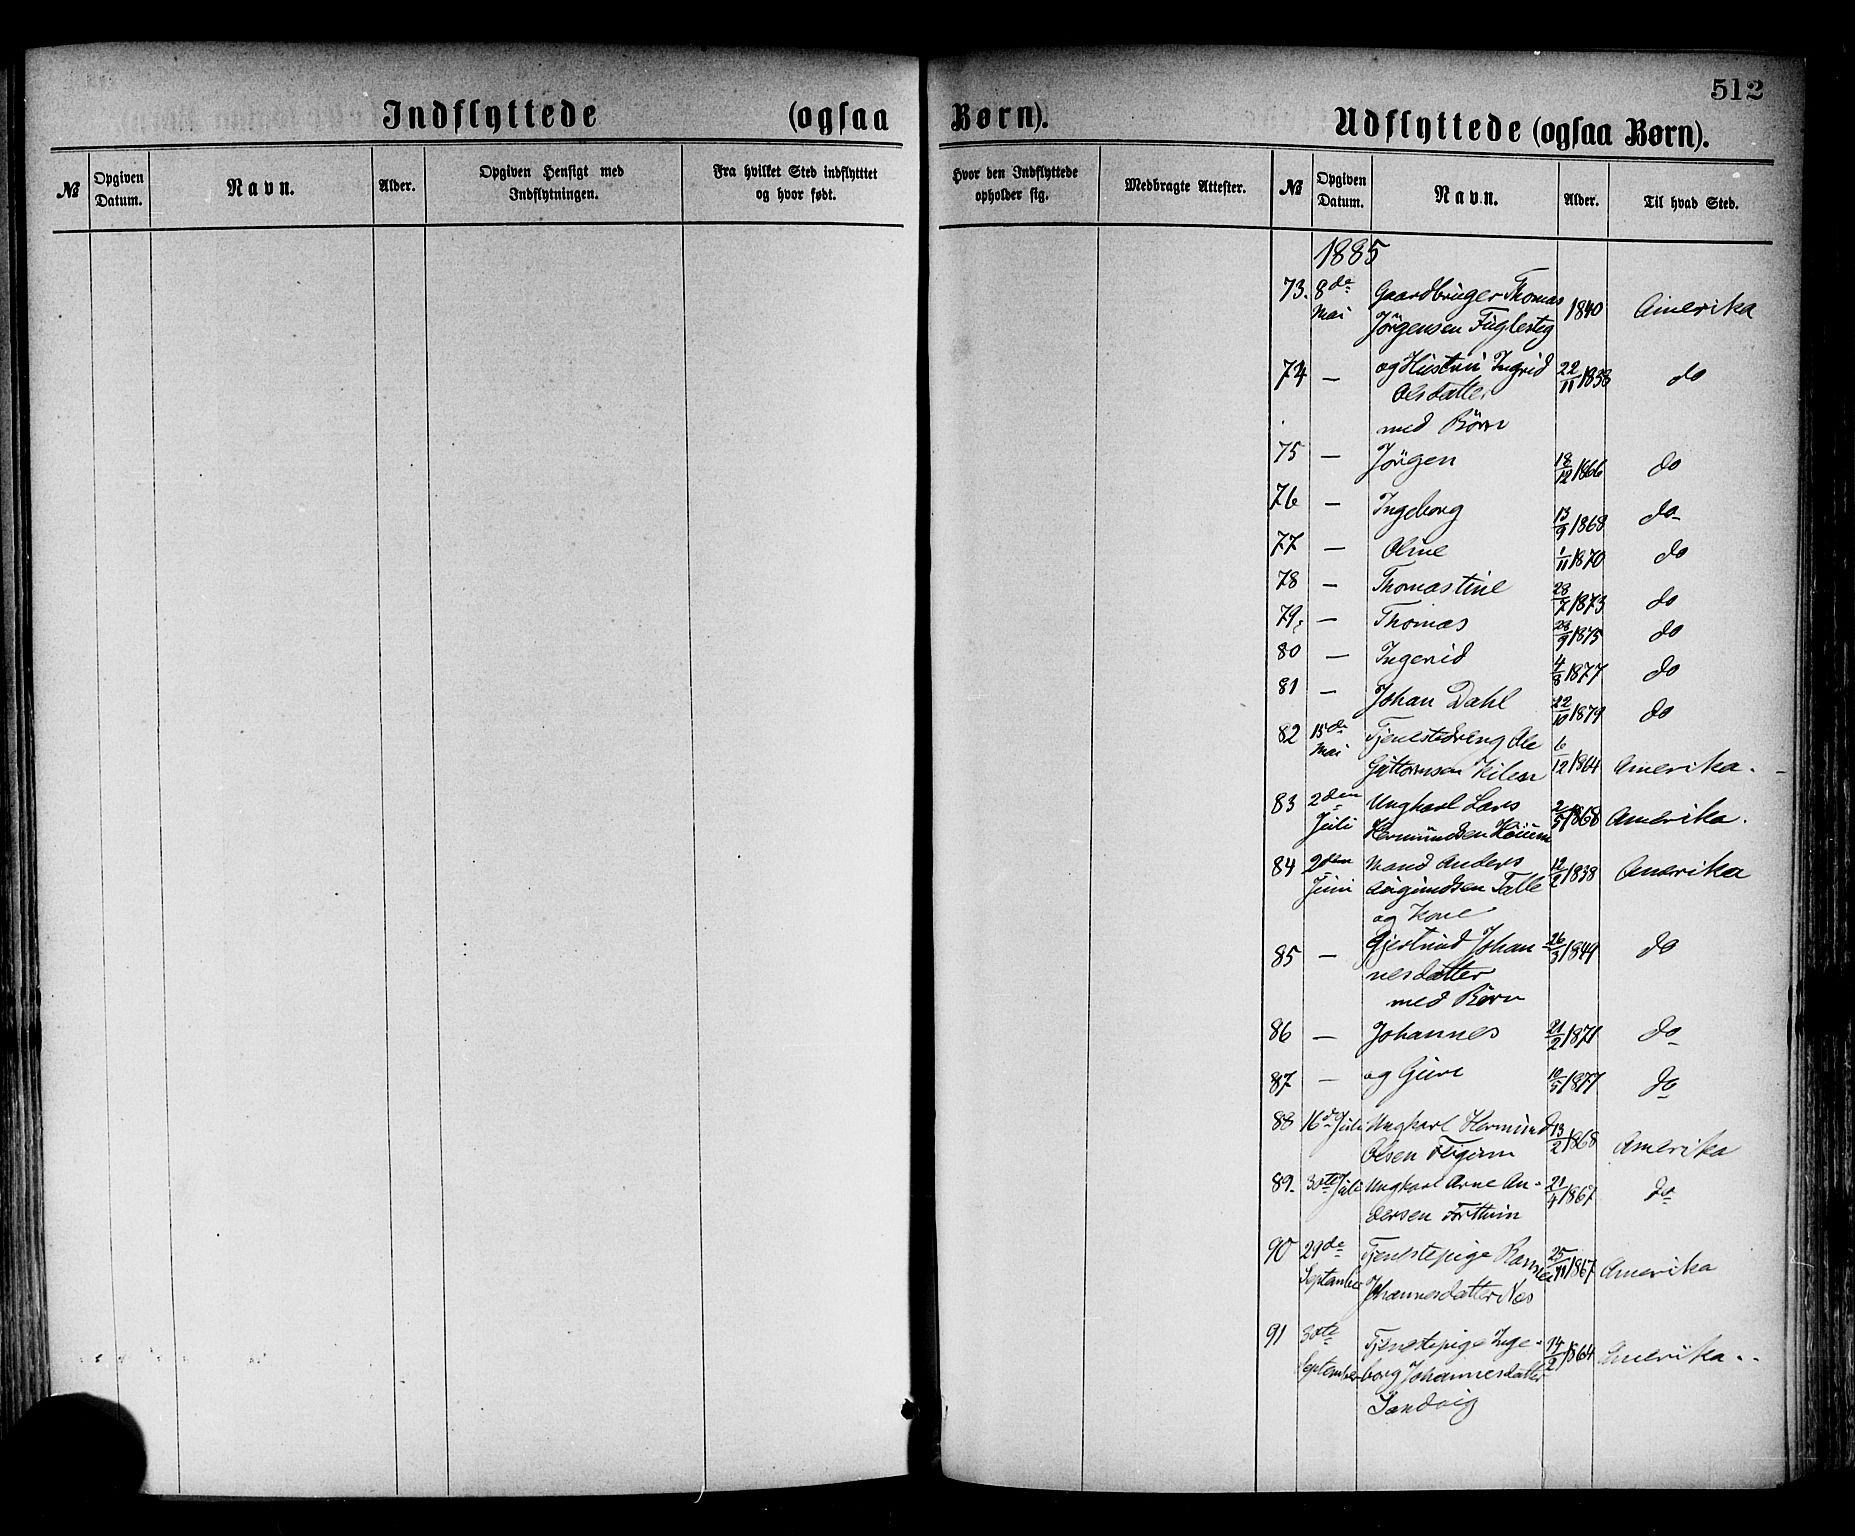 512
Indflyttede (ogsaa Børn).
Udflyttede (ogsaa Børn).
№ Opgiven Datum. Navn. Alder. Opgiven Hensigt med Indflytningen. Fra hvilket Sted indflyttet og hvor født. Hvor den Indflyttede opholder sig. Medbragte Attester. № Opgiven Datum. Navn. Alder. Til hvad Sted.
1885
73. 8de Gaardbruger Thomas
Mai Jørgensen Fuglesteg 1840 Amerika
74 — og Hustru Ingrid 22/11 1838 do
Olsdatter
med Børn
75 — Jørgen 18/12 1866 do
76 — Ingeborg 13/9 1868 do
77 — Oline 1/11 1870 do
78 — Thomastine 28/7 1873 do
79. — Thomas 28/9 1875 do
80 — Ingerid 4/8 1877 do
81 — Johan Dahl 22/10 1879 do
82 15de Tjenestedreng Ole 6/12 1864
Mai Guttormsen Kilen Amerika.
83 2den Ungkarl Lars 2/5 1868 Amerika.
Juli Hermundsen
84 2den Mand Anders 12/2 1838 Amerika
Juni Talle
og Kone
85 — Gjertrud Johan- 26/3 1849 do
nesdatter
med Børn
86 — Johannes 21/2 1871 do
87 — og Guri 10/5 1877 do
88 16de Juli Ungkarl Hermund 13/2 1868
Olsen Amerika
89. 30te Juli Ungkarl Arne An- 21/4 1867 do
dersen Forthun
90 29de Tjenestepige 25/11 1867 Amerika
September Johannesdatter Næs
91 30te Tjenestepige Inge- 14/2 1864 Amerika..
September borg Johannesdatter
Sandvig